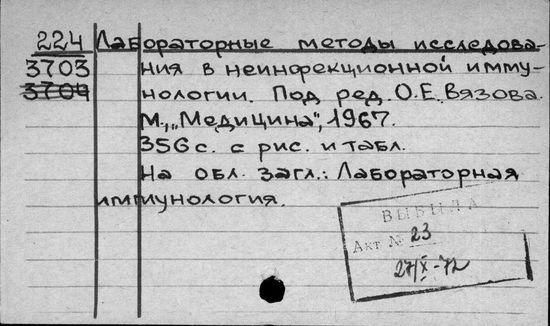 224 Лабораторные методы исследова-
3703 ния в неинфекционной имму-
3704 нологии. Под ред. О.Е. Вязова.
М., „Медицина", 1967.
356 с. с рис. и табл.
На обл. загл.: Лабораторная
иммунология.
ВЫБЫЛА
Акт № 23
27/X-72